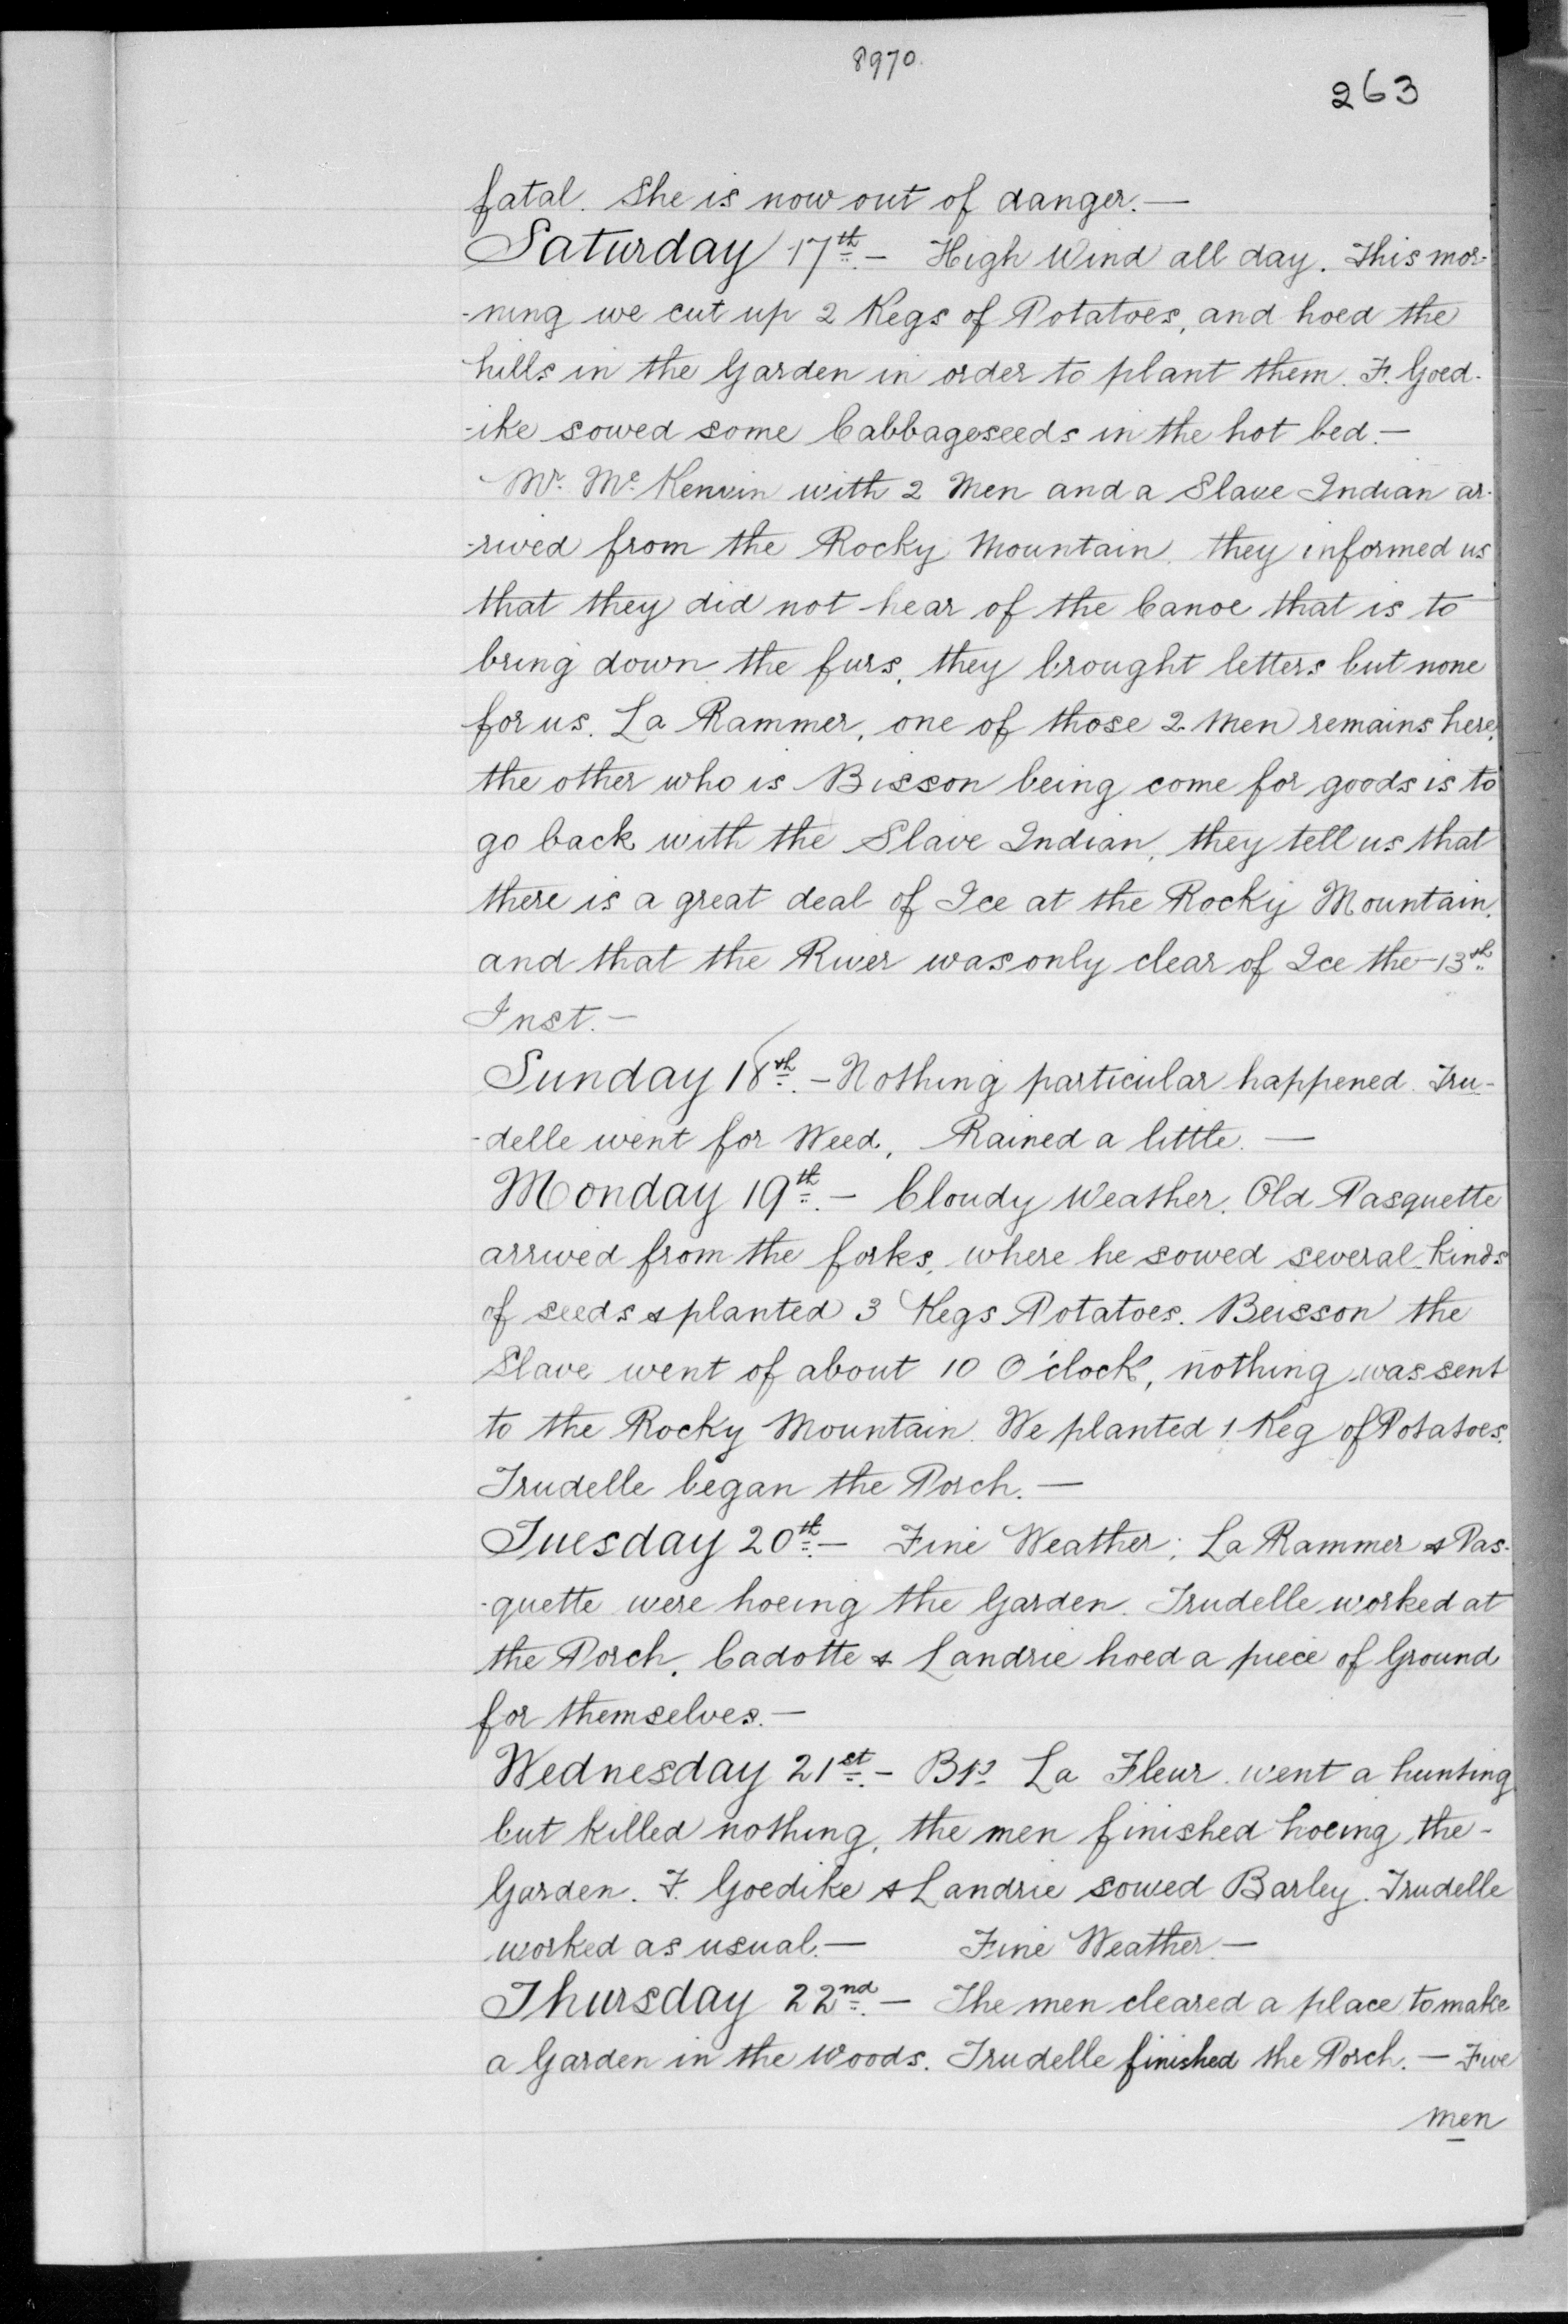 8970.
263
fatal. She is now out of danger. —
Saturday 17th. — High Wind all day. This mor-
-ning we cut up 2 Kegs of Potatoes, and hoed the
hills in the Garden in order to plant them. F. Goed-
-ike sowed some Cabbageseeds in the hot bed. —
Mr. Mc. Kenvin with 2 Men and a Slave Indian ar-
-rived from the Rocky Mountain, they informed us
that they did not hear of the Canoe that is to
bring down the furs, they brought letters but none
for us. La Rammer, one of those 2 Men remains here,
the other who is Bisson being come for goods is to
go back with the Slave Indian, they tell us that
there is a great deal of Ice at the Rocky Mountain,
and that the River was only clear of Ice the 13th
Inst. —
Sunday 18th. — Nothing particular happened. Tru-
-delle went for Weed, Rained a little. —
Monday 19th. — Cloudy Weather. Old Pasquette
arrived from the forks, where he sowed several kinds
of seeds & planted 3 Kegs Potatoes. Beisson the
Slave went of about 10 O'clock, nothing was sent
to the Rocky Mountain. We planted 1 Keg of Potatoes.
Trudelle began the Porch. —
Tuesday 20th. — Fine Weather; La Rammer & Pas-
-quette were hoeing the Garden. Trudelle worked at
the Porch, Cadotte & Landrie hoed a piece of Ground
for themselves. —
Wednesday 21st. — Bte La Fleur went a hunting
but killed nothing, the men finished hoeing the -
Garden. F. Goedike & Landrie sowed Barley. Trudelle
worked as usual. — Fine Weather. —
Thursday 22nd. — The men cleared a place to make
a Garden in the Woods. Trudelle finished the Porch. — Five
men